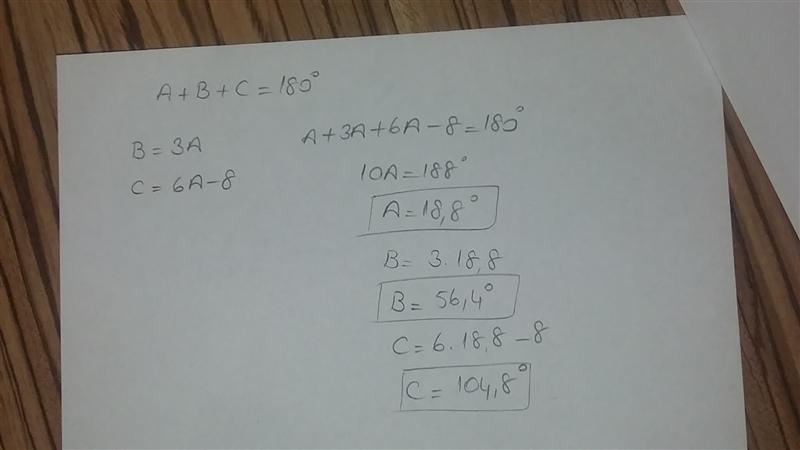 A+B+C=180°
B=3A
C=6A-8
A+3A+6A-8=180°
10A=188°
A=18,8°
B= 3.18,8
B= 56,4°
C=6.18,8-8
C= 104,8°